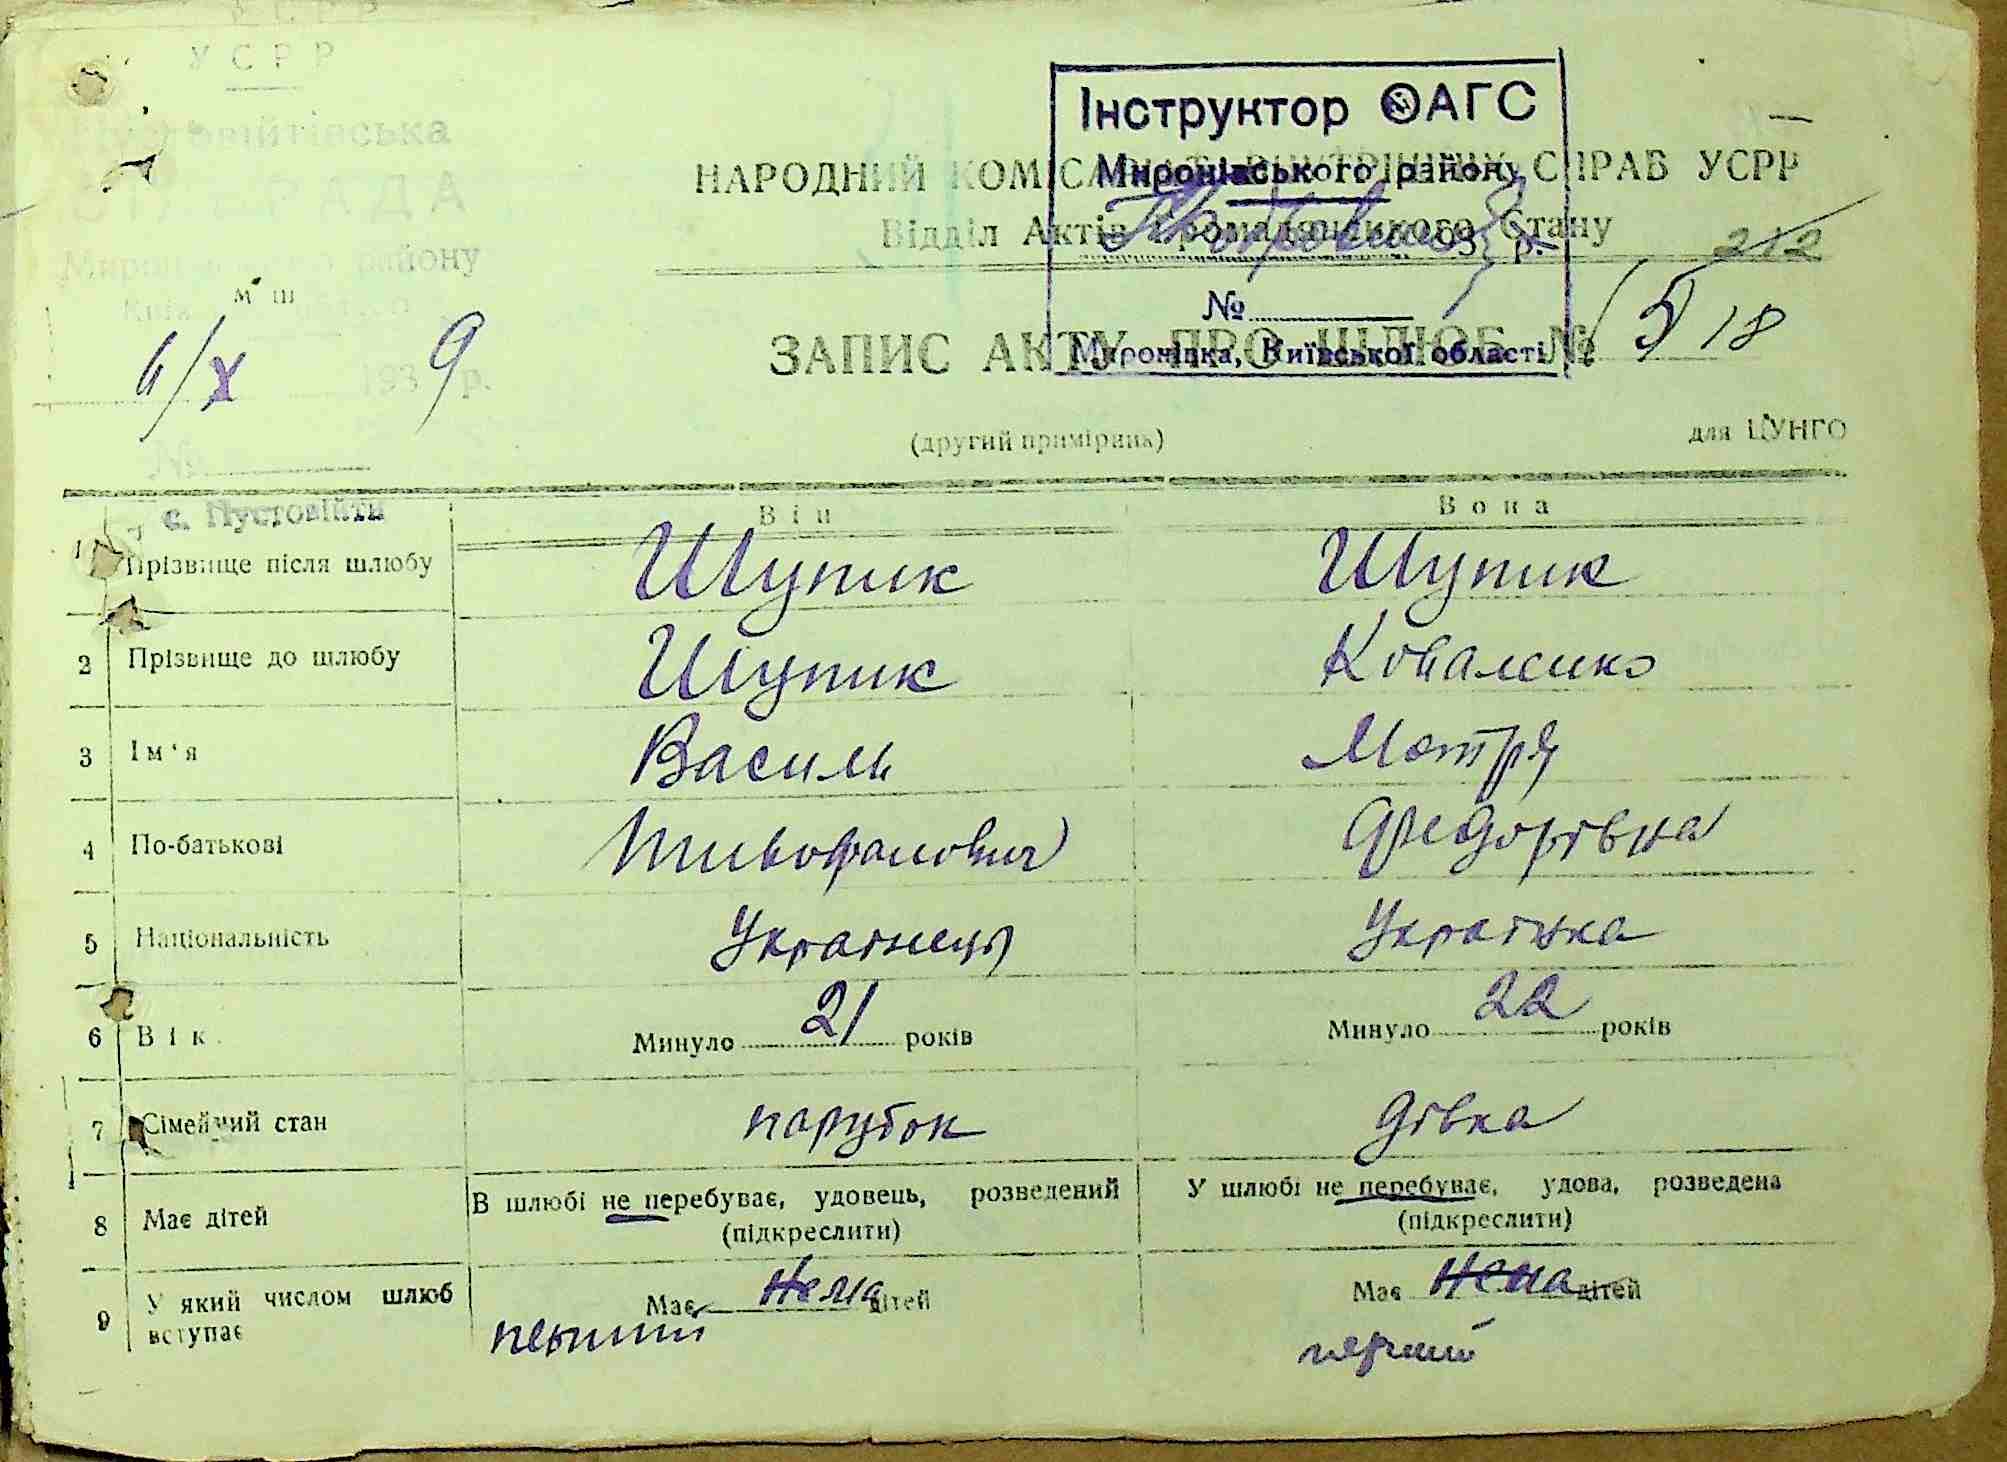 УСРР
Пустовійтівська
СІЛЬРАДА
Миронівського району
№
с. Пустовійти
Інструктор ЗАГС
Миронівського району
193 р.
№
Миронівка, Київської області
НАРОДНИЙ КОМІСАРІАТ ВНУТРІШНІХ СПРАВ УСРР
Відділ Актів Громадянського Стану
212
м ш
6/X 1939 р.
ЗАПИС АКТУ ПРО ШЛЮБ № 5 18
(другий примірник) для ЦУНГО
Він Вона
1 Прізвище після шлюбу Шупик Шупик
2 Прізвище до шлюбу Шупик Коваленко
3 Ім'я Василь Мотря
4 По-батькові Федорівна
5 Національність Українець Українка
6 Вік Минуло 21 років Минуло 22 років
7 Сімейний стан парубок дівка
8 Має дітей В шлюбі не перебуває, удовець, розведений У шлюбі не перебуває, удова, розведена
(підкреслити) (підкреслити)
9 У який числом шлюб вступає Має Нема дітей Має Нема дітей
перший перший